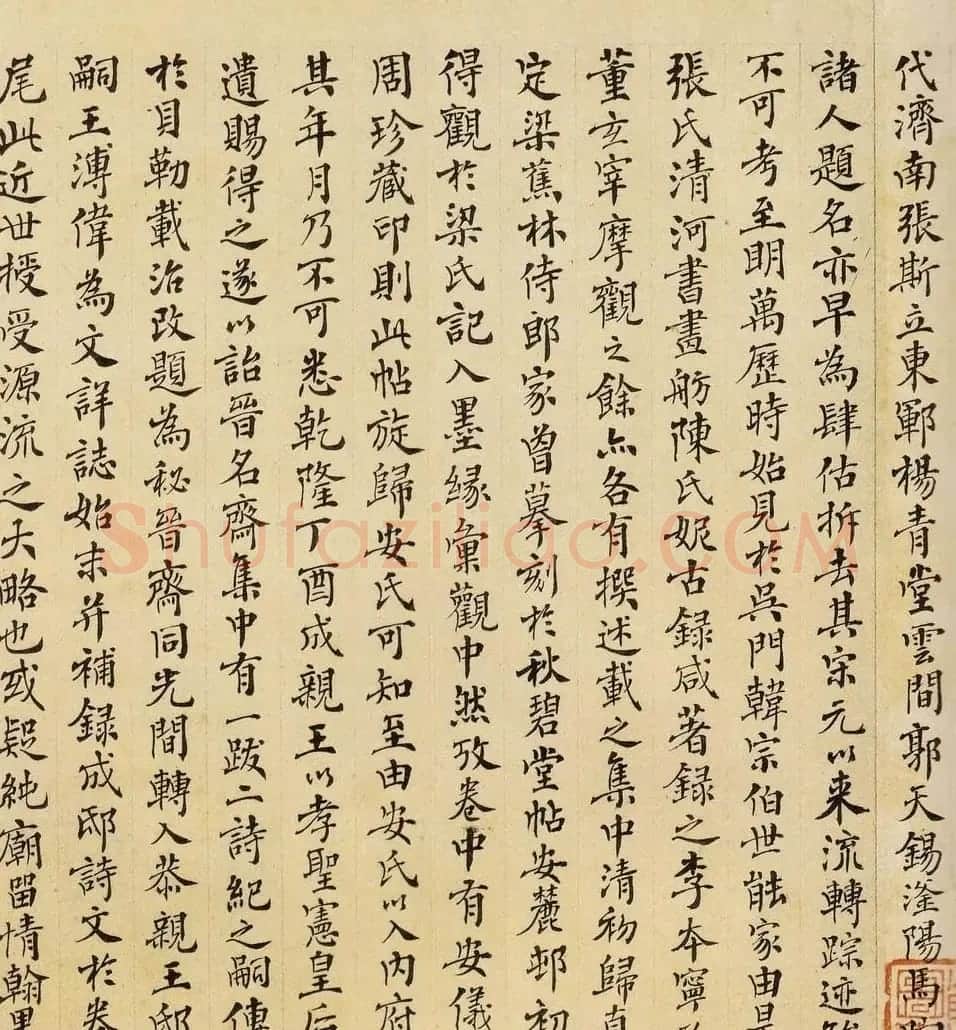 代濟南張斯立東鄆楊青堂雲間郭天錫滏陽馬
諸人題名亦早為肆估拆去其宋元以来流轉踪迹
不可考至明萬歷時始見於吳門韓宗伯世能家由是
張氏清河書畫舫陳氏妮古録咸著録之李本寧
董玄宰摩觀之餘亦各有撰述載之集中清初歸真
定梁蕉林侍郎家曾摹刻於秋碧堂帖安麓邨初
得觀於梁氏記入墨緣彙觀中然攷卷中有安儀
周珍藏印則此帖旋歸安氏可知至由安氏以入內府
其年月乃不可悉乾隆丁酉成親王以孝聖憲皇后
遺賜得之遂以詒晉名齋集中有一跋二詩紀之嗣傳
於貝勒載治改題為秘晉齋同光間轉入恭親王邸
嗣王溥偉為文詳誌始末并補録成邸詩文於卷
尾此近世授受源流之大略也或疑純廟留情翰墨
Shufaziliao.COM